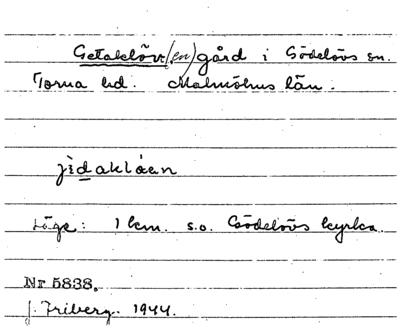 Getaklöv(en) gård i Gödelövs sn.
Torna hd. Malmöhus län.
Läge: 1 km. s.o. Gödelövs kyrka.
Nr 5838.
J. Friberg. 1944.